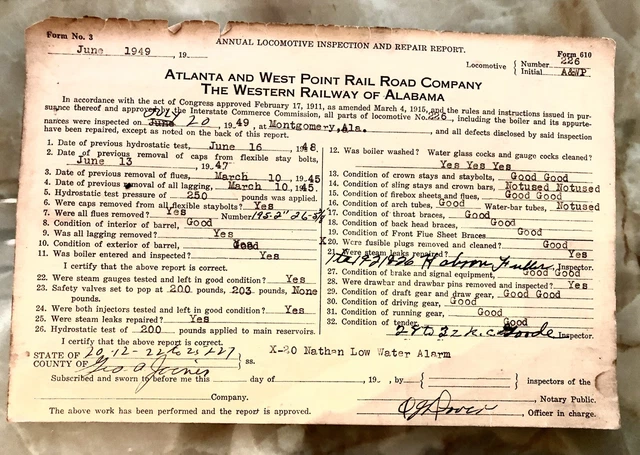 Form No. 3
June 1949 , 19
ANNUAL LOCOMOTIVE INSPECTION AND REPAIR REPORT.
Form 610
Locomotive { Number 226
Initial A&WP
ATLANTA AND WEST POINT RAIL ROAD COMPANY
THE WESTERN RAILWAY OF ALABAMA
In accordance with the act of Congress approved February 17, 1911, as amended March 4, 1915, and the rules and instructions issued in pur-
suance thereof and approved by the Interstate Commerce Commission, all parts of locomotive No. 226, including the boiler and its appurte-
nances were inspected on June July 20 , 1949 , at Montgomery, Ala. , and all defects disclosed by said inspection
have been repaired, except as noted on the back of this report.
1. Date of previous hydrostatic test, June 16 , 1948.
2. Date of previous removal of caps from flexible stay bolts,
June 13 , 1947
3. Date of previous removal of flues, March 10 , 1945
4. Date of previous removal of all lagging, March 10 , 1945.
5. Hydrostatic test pressure of 250 pounds was applied.
6. Were caps removed from all flexible staybolts? Yes
7. Were all flues removed? Yes Number
8. Condition of interior of barrel, Good
9. Was all lagging removed? Yes
10. Condition of exterior of barrel, Good
11. Was boiler entered and inspected? Yes
I certify that the above report is correct.
22. Were steam gauges tested and left in good condition? Yes
23. Safety valves set to pop at 200 pounds, 203 pounds, None
pounds.
24. Were both injectors tested and left in good condition? Yes
25. Were steam leaks repaired? Yes
26. Hydrostatic test of 200 pounds applied to main reservoirs.
I certify that the above report is correct.
12. Was boiler washed? Water glass cocks and gauge cocks cleaned?
Yes Yes Yes
13. Condition of crown stays and staybolts, Good Good
14. Condition of sling stays and crown bars, Notused Notused
15. Condition of firebox sheets and flues, Good Good
16. Condition of arch tubes, Good Water-bar tubes, Notused
17. Condition of throat braces, Good
18. Condition of back head braces, Good
19. Condition of Front Flue Sheet Braces Good
X20. Were fusible plugs removed and cleaned? Good
21. Were steam leaks repaired? Yes
Inspector.
27. Condition of brake and signal equipment, Good Good
28. Were drawbar and drawbar pins removed and inspected? Yes
29. Condition of draft gear and draw gear, Good Good
30. Condition of driving gear, Good
31. Condition of running gear, Good
32. Condition of tender, Good
Inspector.
STATE OF
COUNTY OF
ss.
X-20 Nathan Low Water Alarm
Subscribed and sworn to before me this day of , 19 , by { inspectors of the
Company. , Notary Public.
The above work has been performed and the report is approved. , Officer in charge.